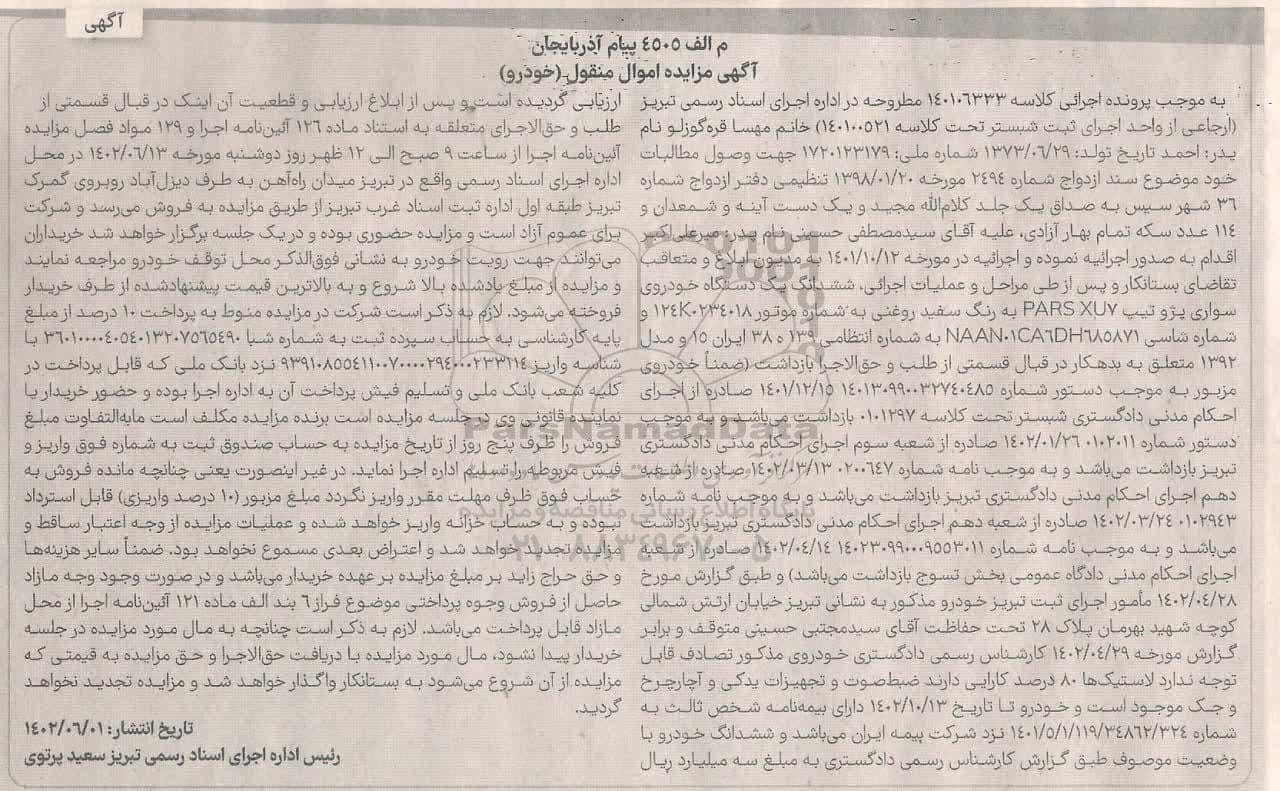 آگهی
م الف ٤٥٠٥ پیام آذربایجان
آگهی مزایده اموال منقول (خودرو)
به موجب پرونده اجرائی کلاسه ١٤٠١٠٦٣٣٣ مطروحه در اداره اجرای اسناد رسمی تبریز
(ارجاعی از واحد اجرای ثبت شبستر تحت کلاسه ١٤٠١٠٠٥٢١) خانم مهسا قره‌گوزلو نام
پدر: احمد تاریخ تولد: ١٣٧٣/٠٦/٢٩ شماره ملی: ١٧٢٠١٢٣١٧٩ جهت وصول مطالبات
خود موضوع سند ازدواج شماره ٢٤٩٤ مورخه ١٣٩٨/٠١/٢٠ تنظیمی دفتر ازدواج شماره
٣٦ شهر سیس به صداق یک جلد کلام‌الله مجید و یک دست آینه و شمعدان و
١١٤ عدد سکه تمام بهار آزادی، علیه آقای سیدمصطفی حسینی نام پدر: میرعلی‌اکبر
اقدام به صدور اجرائیه نموده و اجرائیه در مورخه ١٤٠١/١٠/١٢ به مدیون ابلاغ و متعاقب
تقاضای بستانکار و پس از طی مراحل و عملیات اجرائی، ششدانگ یک دستگاه خودروی
سواری پژو تیپ PARS XU٧ به رنگ سفید روغنی به شماره موتور ١٢٤K٠٢٣٤٠١٨ و
شماره شاسی NAAN٠١CA٦DH٦٨٥٨٧١ به شماره انتظامی ١٣٩ ه ٣٨ ایران ١٥ و مدل
١٣٩٢ متعلق به بدهکار در قبال قسمتی از طلب و حق‌الاجرا بازداشت (ضمناً خودروی
مزبور به موجب دستور شماره ١٤٠١٣٠٩٩٠٠٣٢٧٤٠٤٨٥ ١٤٠١/١٢/١٥ صادره از اجرای
احکام مدنی دادگستری شبستر تحت کلاسه ٠١٠١٢٩٧ بازداشت می‌باشد و به موجب
دستور شماره ٠١٠٢٠١١ ١٤٠٢/٠١/٢٦ صادره از شعبه سوم اجرای احکام مدنی دادگستری
تبریز بازداشت می‌باشد و به موجب نامه شماره ٠٢٠٠٦٤٧ ١٤٠٢/٠٣/١٣ صادره از شعبه
دهم اجرای احکام مدنی دادگستری تبریز بازداشت می‌باشد و به موجب نامه شماره
٠١٠٢٩٤٣ ١٤٠٢/٠٣/٢٤ صادره از شعبه دهم اجرای احکام مدنی دادگستری تبریز بازداشت
می‌باشد و به موجب نامه شماره ١٤٠٢٣٠٩٩٠٠٠٩٥٥٣٠١١ ١٤٠٢/٠٤/١٤ صادره از شعبه
اجرای احکام مدنی دادگاه عمومی بخش تسوج بازداشت می‌باشد) و طبق گزارش مورخ
١٤٠٢/٠٤/٢٨ مأمور اجرای ثبت تبریز خودرو مذکور به نشانی تبریز خیابان ارتش شمالی
کوچه شهید بهرمان پلاک ٢٨ تحت حفاظت آقای سیدمجتبی حسینی متوقف و برابر
گزارش مورخه ١٤٠٢/٠٤/٢٩ کارشناس رسمی دادگستری خودروی مذکور تصادف قابل
توجه ندارد لاستیک‌ها ٨٠ درصد کارایی دارند ضبط‌صوت و تجهیزات یدکی و آچارچرخ
و جک موجود است و خودرو تا تاریخ ١٤٠٢/١٠/١٣ دارای بیمه‌نامه شخص ثالث به
شماره ١٤٠١/٥/١/١١٩/٣٤٨٦٢/٣٢٤ نزد شرکت بیمه ایران می‌باشد و ششدانگ خودرو با
وضعیت موصوف طبق گزارش کارشناس رسمی دادگستری به مبلغ سه میلیارد ریال
ارزیابی گردیده است و پس از ابلاغ ارزیابی و قطعیت آن اینک در قبال قسمتی از
طلب و حق‌الاجرای متعلقه به استناد ماده ١٢٦ آئین‌نامه اجرا و ١٢٩ مواد فصل مزایده
آئین‌نامه اجرا از ساعت ٩ صبح الی ١٢ ظهر روز دوشنبه مورخه ١٤٠٢/٠٦/١٣ در محل
اداره اجرای اسناد رسمی واقع در تبریز میدان راه‌آهن به طرف دیزل‌آباد روبروی گمرک
تبریز طبقه اول اداره ثبت اسناد غرب تبریز از طریق مزایده به فروش می‌رسد و شرکت
برای عموم آزاد است و مزایده حضوری بوده و در یک جلسه برگزار خواهد شد خریداران
می‌توانند جهت رویت خودرو به نشانی فوق‌الذکر محل توقف خودرو مراجعه نمایند
و مزایده از مبلغ یادشده بالا شروع و به بالاترین قیمت پیشنهادشده از طرف خریدار
فروخته می‌شود. لازم به ذکر است شرکت در مزایده منوط به پرداخت ١٠ درصد از مبلغ
پایه کارشناسی به حساب سپرده ثبت به شماره شبا ٣٦٠١٠٠٠٠٤٠٥٤٠١٣٢٠٧٥٦٥٤٩٠ با
شناسه واریز ٩٣٩١٠٨٥٥٤١١٠٠٧٠٠٠٠٢٩٤٠٠٠٢٣٣١١٤ نزد بانک ملی که قابل پرداخت در
کلیه شعب بانک ملی و تسلیم فیش پرداخت آن به اداره اجرا بوده و حضور خریدار یا
نماینده قانونی وی در جلسه مزایده است برنده مزایده مکلف است مابه‌التفاوت مبلغ
فروش را ظرف پنج روز از تاریخ مزایده به حساب صندوق ثبت به شماره فوق واریز و
فیش مربوطه را تسلیم اداره اجرا نماید. در غیر اینصورت یعنی چنانچه مانده فروش به
حساب فوق ظرف مهلت مقرر واریز نگردد مبلغ مزبور (١٠ درصد واریزی) قابل استرداد
نبوده و به حساب خزانه واریز خواهد شد و عملیات مزایده از وجه اعتبار ساقط و
مزایده تجدید خواهد شد و اعتراض بعدی مسموع نخواهد بود. ضمناً سایر هزینه‌ها
و حق حراج زاید بر مبلغ مزایده بر عهده خریدار می‌باشد و در صورت وجود وجه مازاد
حاصل از فروش وجوه پرداختی موضوع فراز ٦ بند الف ماده ١٢١ آئین‌نامه اجرا از محل
مازاد قابل پرداخت می‌باشد. لازم به ذکر است چنانچه به مال مورد مزایده در جلسه
خریدار پیدا نشود، مال مورد مزایده با دریافت حق‌الاجرا و حق مزایده به قیمتی که
مزایده از آن شروع می‌شود به بستانکار واگذار خواهد شد و مزایده تجدید نخواهد
گردید.
تاریخ انتشار: ١٤٠٢/٠٦/٠١
رئیس اداره اجرای اسناد رسمی تبریز سعید پرتوی
ParsNamadData
پایگاه اطلاع رسانی مناقصه و مزایده
٠٢١-٨٨٣٤٩٦٧٠-٥